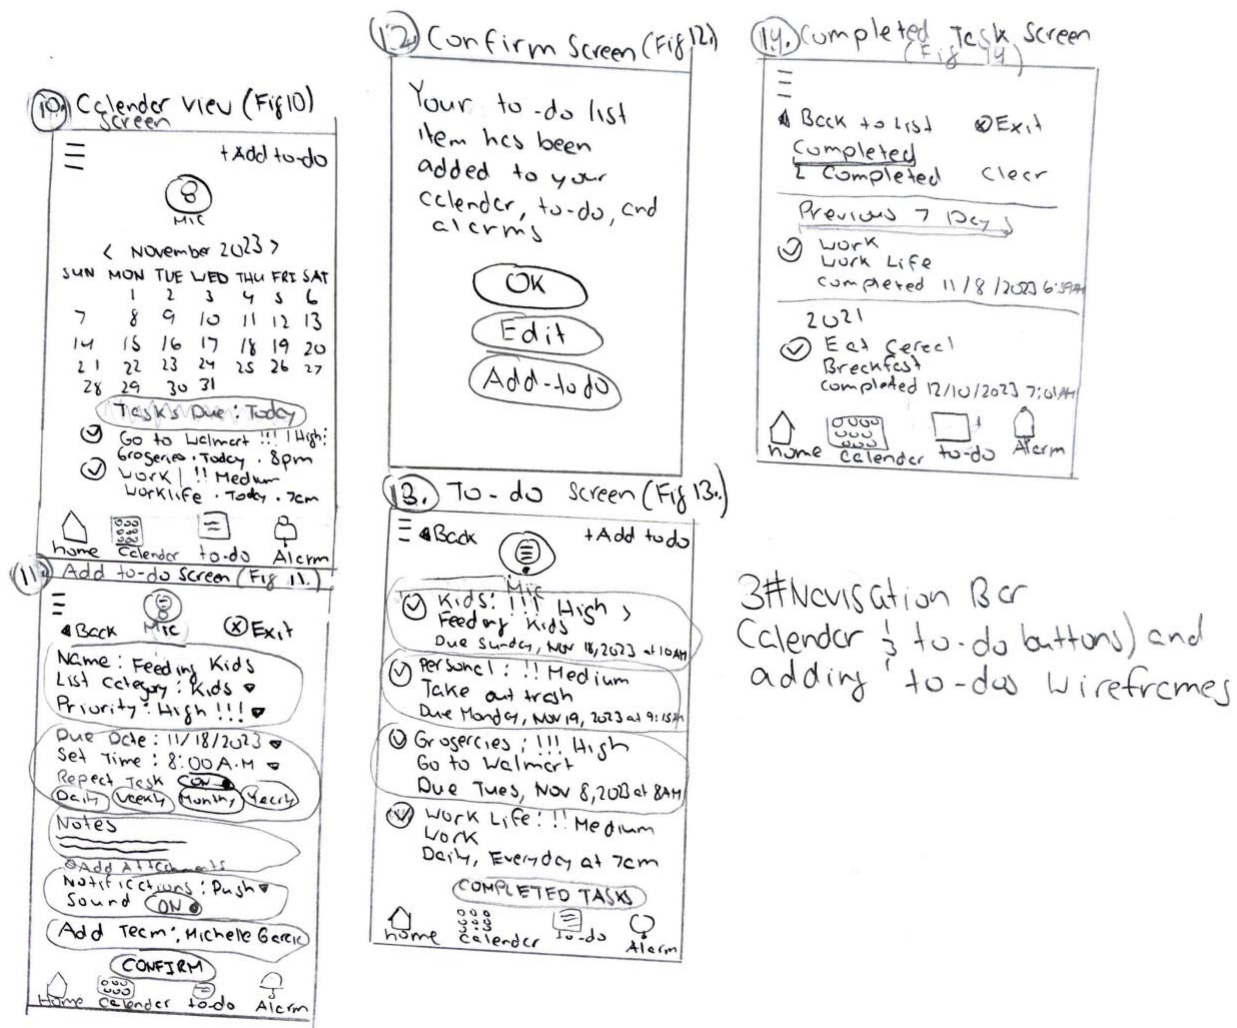 10. Calender View (Fig 10)
Screen
+Add to-do
Mic
< November 2023 >
SUN MON TUE WED THU FRI SAT
1 2 3 4 5 6
7 8 9 10 11 12 13
14 15 16 17 18 19 20
21 22 23 24 25 26 27
28 29 30 31
Tasks Due: Today
Go to Walmart !!! | High:
Groseries • Today • 8pm
Work | !! Medium
Worklife • Today • 7am
home Calender to-do Alarm
11. Add to-do Screen (Fig 11.)
Mic
Back Exit
Name: Feeding Kids
List Category: Kids
Priority: High !!!
Due Date: 11/18/2023
Set Time: 8:00 A.M
Repeat Task ON
Daily Weekly Monthly Yearly
Notes
Add Attachments
Notifications: Push
Sound ON
Add Team: Michelle Garcia
CONFIRM
Home Calender to-do Alarm
12. Confirm Screen (Fig 12.)
Your to-do list
item has been
added to your
calender, to-do, and
alarms
OK
Edit
Add-to do
13. To-do Screen (Fig 13.)
Back +Add to do
Mic
Kids: !!! High >
Feeding Kids
Due Sunday, Nov 18, 2023 at 10AM
Personal: !! Medium
Take out trash
Due Monday, Nov 19, 2023 at 9:15AM
Groserries: !!! High
Go to Walmart
Due Tues, Nov 8, 2023 at 8AM
Work Life: !! Medium
Work
Daily, Everyday at 7am
COMPLETED TASKS
home Calender to-do Alarm
14. Completed Task Screen
(Fig 14)
Back to List Exit
Completed
2 Completed Clear
Previous 7 Days
Work
Work Life
Completed 11/8/2023 6:59AM
2021
Eat Cereal
Breakfast
Completed 12/10/2023 7:01AM
home Calender to-do Alarm
3#Navigation Bar
Calender & to-do buttons) and
adding to-dos Wireframes